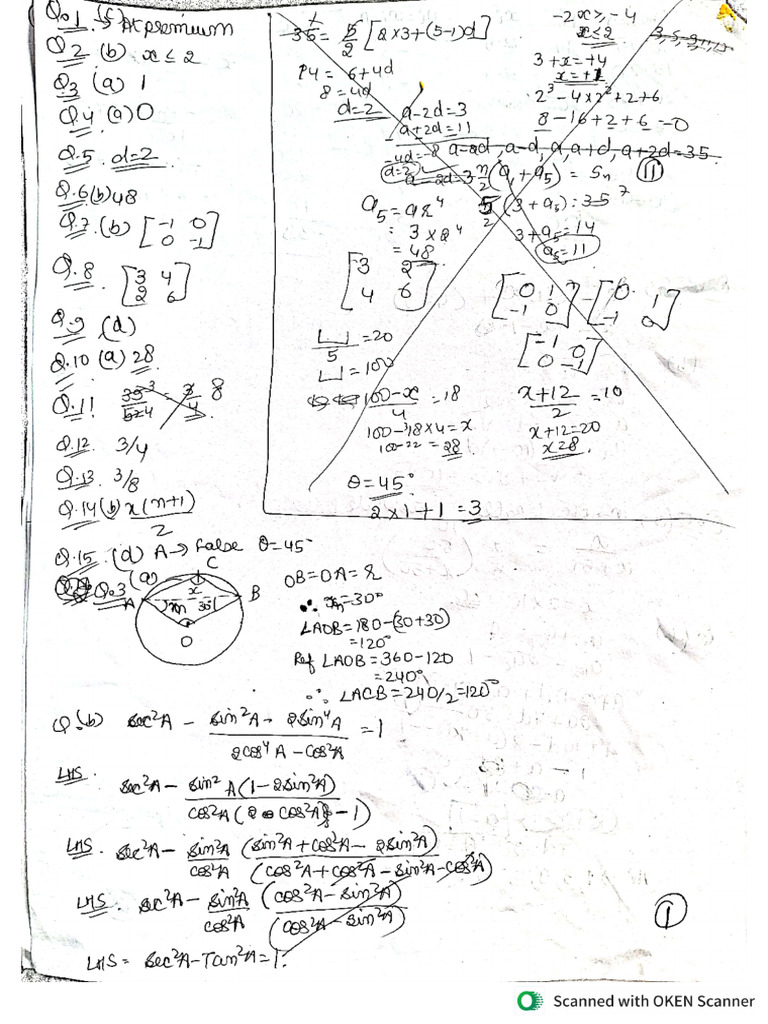 Q.1. (c) At premium
Q.2 (b) x ≤ 2
Q.3 (a) 1
Q.4 (a) 0
Q.5 d=2
Q.6 (b) 48
Q.7 (b) [-1 0
0 -1]
Q.8 [3 4
2 6]
Q.9 (d)
Q.10 (a) 28
Q.11 8
Q.12 3/4
Q.13 3/8
Q.14 (b) x(n+1)
2
Q.15 (d) A → False θ=45°
35 = 5/2 [2×3+(5-1)d]
14 = 6+4d
8=4d
d=2
a-2d=3
a+2d=11
-4d=-8
d=2
a-2d, a-d, a, a+d, a+2d=35
-2x ≥ -4
x≤2
3+x=+4
x=+1
2³-4×2²+2+6
8-16+2+6=0
n/2 (a₁+a₅) = Sn
5/2 (3+a₅)=35 7
3+a₅=14
a₅=11
11
a₅=ar⁴
= 3×2⁴
= 48
[3 2
4 6]
[0 1
-1 0]
[0 1
-1 0]
[-1 0
0 -1]
/5 =20
=100
100-x/4 =18
100-18×4=x
100-72=28
x+12/2 =10
x+12=20
x=8.
θ=45°
2×1+1=3
Q.3 (a)
C
x
A
m
30°
B
O
OB=OA=r
∴ m=30°
∠AOB=180-(30+30)
=120°
Ref ∠AOB=360-120
=240°
∴ ∠ACB=240/2=120°
Q.(b) sec²A - sin²A - 2sin⁴A / 2cos⁴A - cos²A =1
LHS. sec²A - sin²A(1-2sin²A) / cos²A(2cos²A-1)
LHS. sec²A - sin²A/cos²A (sin²A+cos²A-2sin²A) / (cos²A+cos²A-sin²A-cos²A)
LHS. sec²A - sin²A/cos²A (cos²A-sin²A) / (cos²A-sin²A)
LHS = sec²A-Tan²A=1.
1
Scanned with OKEN Scanner